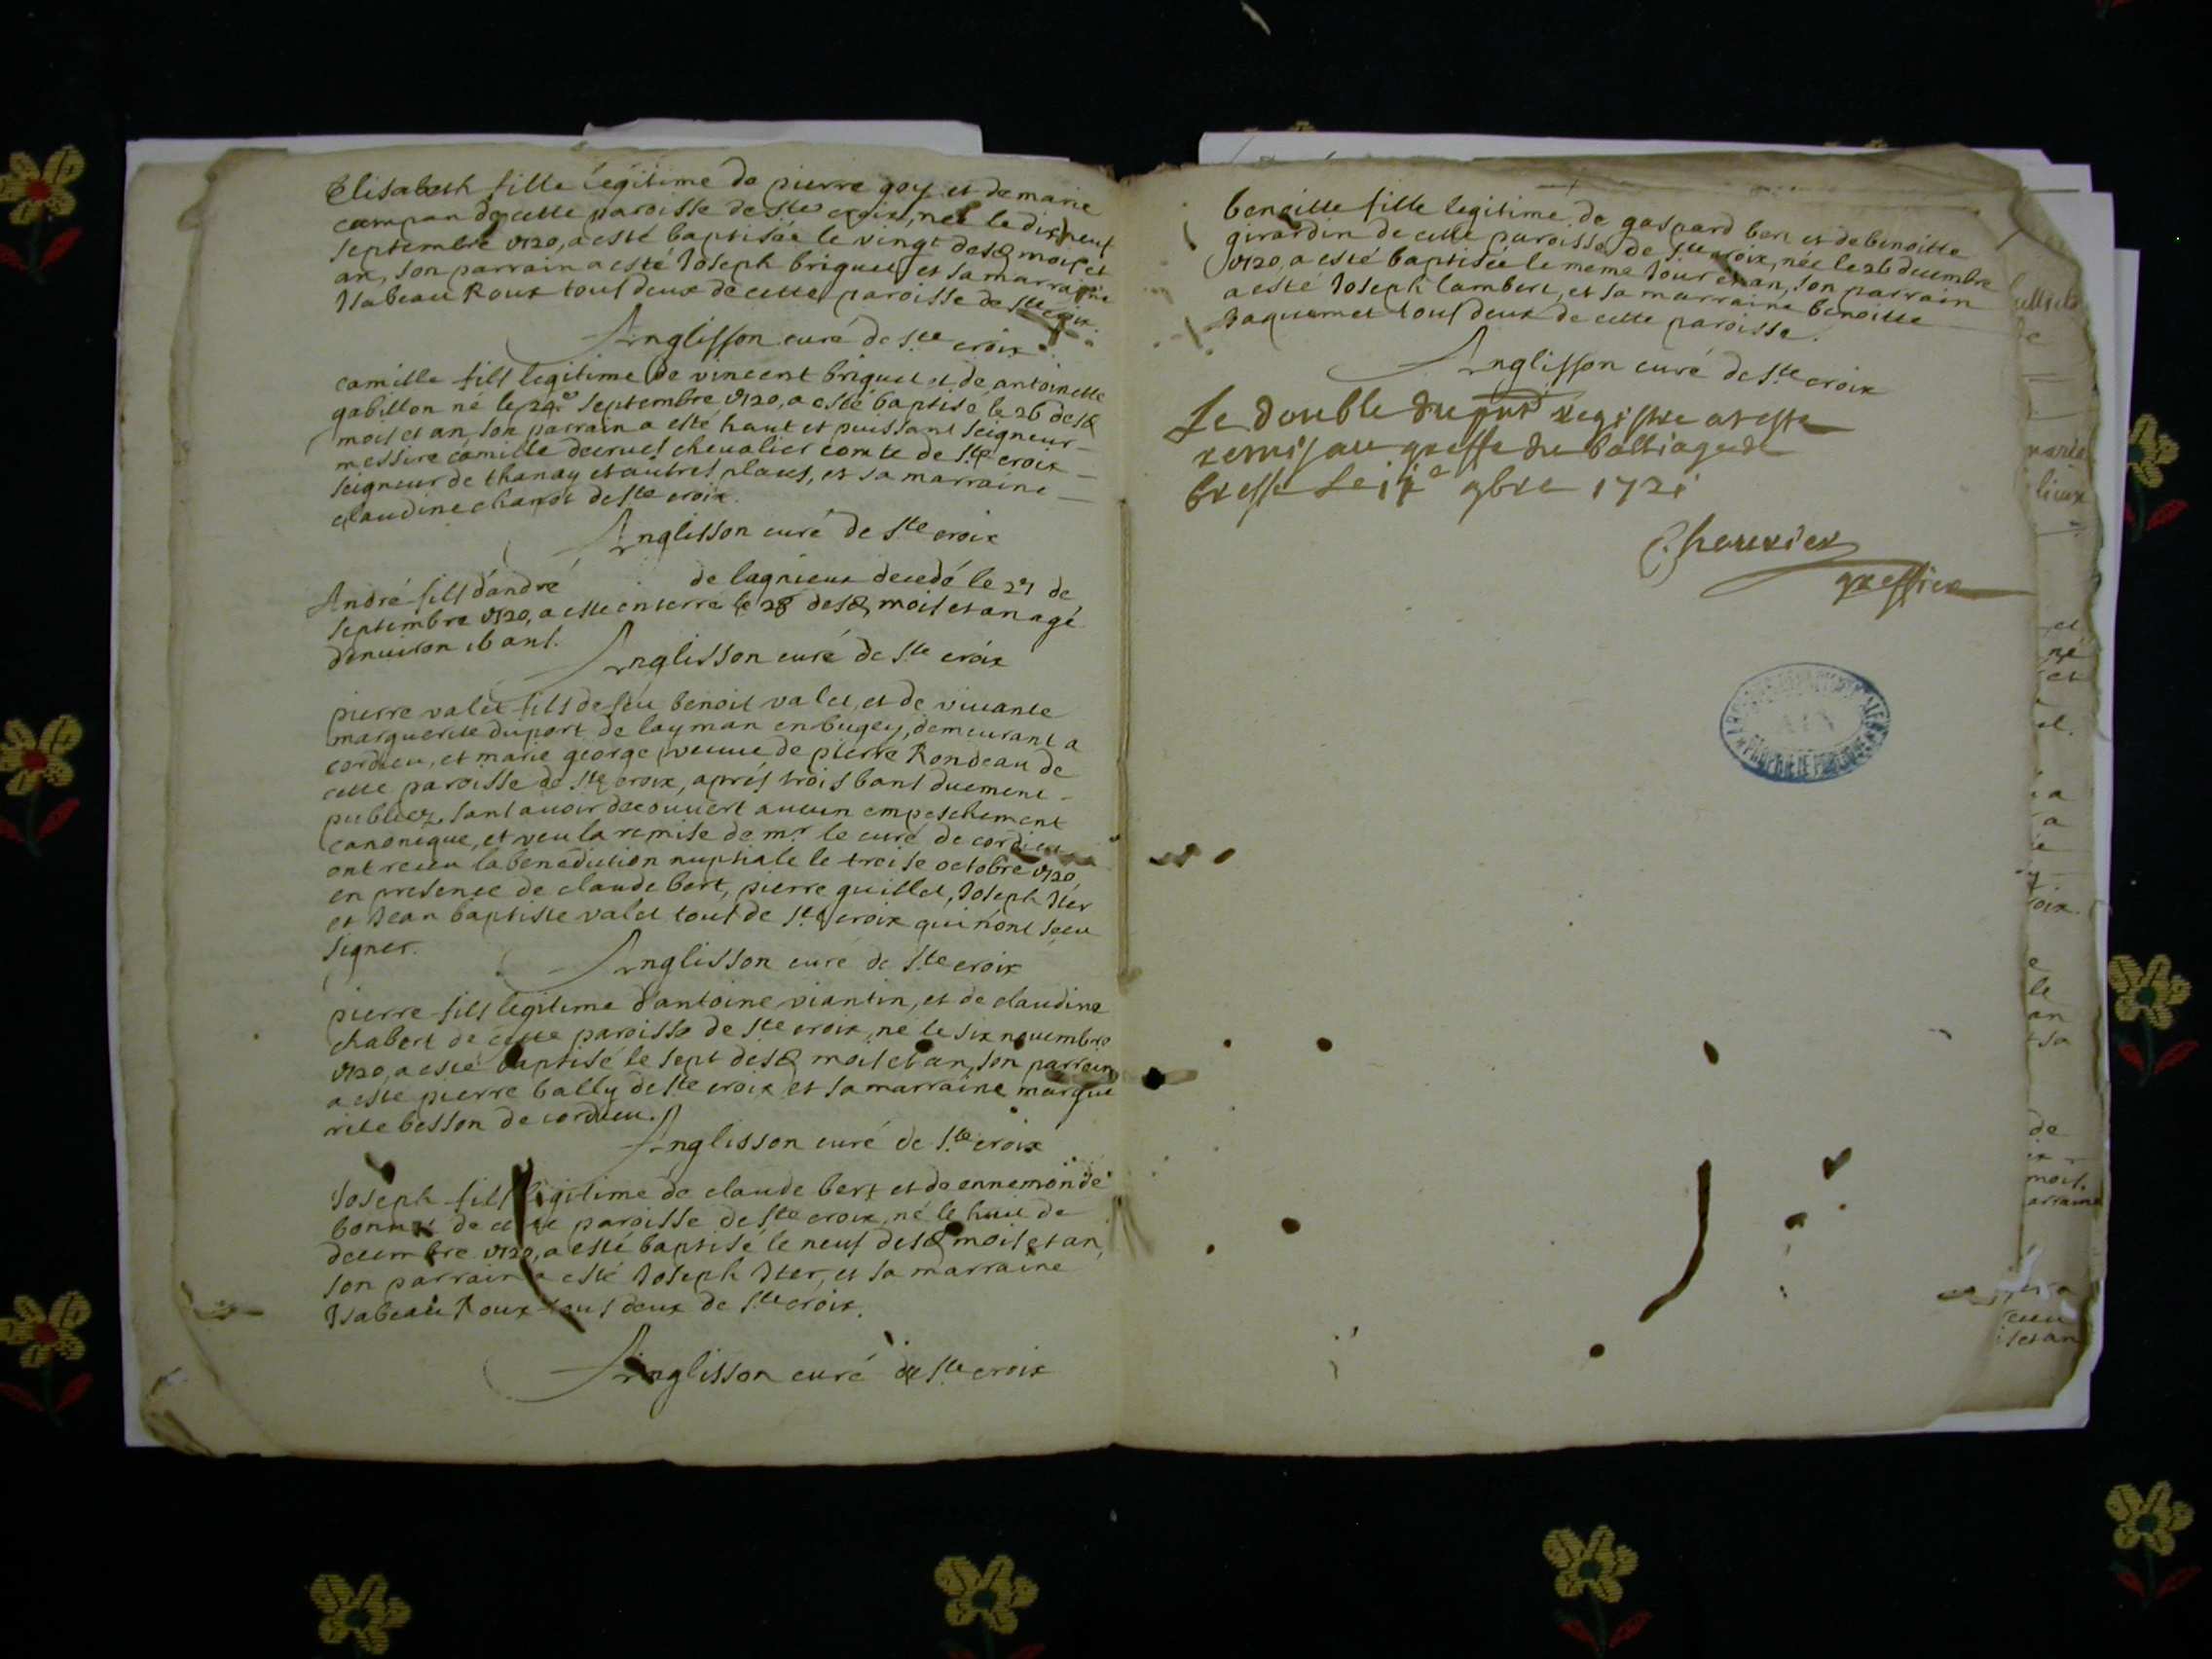 Elisabeth fille legitime de pierre goy et de marie
campan de cette paroisse de Ste croix, née le dixneuf
septembre 1720, a esté baptisée le vingt desd mois et
an, son parrain a esté Joseph briquet et sa marraine
Isabeau Roux tous deux de cette paroisse de Ste croix.
Anglisson curé de Ste croix
camille fils legitime de vincent briquet et de antoinette
gabillon né le 24e septembre 1720, a esté baptisé le 26 desd
mois et an, son parrain a esté haut et puissant seigneur
messire camille chevalier comte de Ste croix
seigneur de thanay et autres places, et sa marraine
claudine de Ste croix.
Anglisson curé de Ste croix
André fils d'andré de lagnieux decedé le 27 de
septembre 1720, a esté enterré le 28 desd mois et an agé
d'enuiron 16 ans.
Anglisson curé de Ste croix
pierre valet fils de feu benoit valet, et de viuante
marguerite duport de layman en bugey, demeurant a
cordieu, et marie george veuue de pierre Rondeau de
cette paroisse de Ste croix, aprés trois bans duement
publiez, sans auoir decouuert aucun empeschement
canonique, et veu la remise de mr le curé de cordieu
ont receu la benediction nuptiale le treise octobre 1720
en presence de claude bert, pierre guillet, Joseph Iter
et Jean baptiste valet tous de Ste croix qui n'ont sceu
signer.
Anglisson curé de Ste croix
pierre fils legitime d'antoine viantin, et de claudine
chabert de cette paroisse de Ste croix, né le six nouembre
1720, a esté baptisé le sept desd mois et an, son parrain
a esté pierre bally de Ste croix et sa marraine margue
rite besson de cordieu.
Anglisson curé de Ste croix
Joseph fils legitime de claude bert et de ennemonde
bonnet de cette paroisse de Ste croix, né le huit de
decembre 1720, a esté baptisé le neuf desd mois et an,
son parrain a esté Joseph Iter, et sa marraine
Isabeau Roux tous deux de Ste croix.
Anglisson curé de Ste croix
benoitte fille legitime de gaspard bert et de benoitte
girardin de cette paroisse de Ste croix, née le 26 decembre
1720, a esté baptisée le meme jour et an, son parrain
a esté Joseph lambert, et sa marraine benoitte
Jaquemet tous deux de cette paroisse.
Anglisson curé de Ste croix
Le double du pnt registre a esté
remis au greffe du balliage de
bresse Le 9bre 1721
Cheurier
greffier